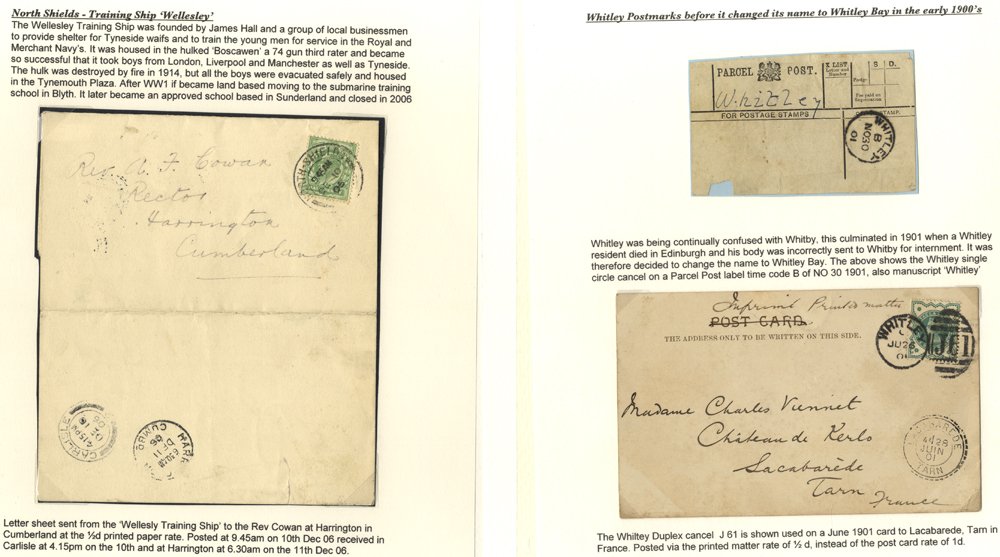 North Shields - Training Ship 'Wellesley'
The Wellesley Training Ship was founded by James Hall and a group of local businessmen
to provide shelter for Tyneside waifs and to train the young men for service in the Royal and
Merchant Navy's. It was housed in the hulked 'Boscawen' a 74 gun third rater and became
so successful that it took boys from London, Liverpool and Manchester as well as Tyneside.
The hulk was destroyed by fire in 1914, but all the boys were evacuated safely and housed
in the Tynemouth Plaza. After WW1 if became land based moving to the submarine training
school in Blyth. It later became an approved school based in Sunderland and closed in 2006
Rev. A. F. Cowan
Rector
Harrington
Cumberland
CARLISLE
4.15PM
DE 10
06
HARR
6.30AM
DE 11
06
CUMBD
Letter sheet sent from the 'Wellesly Training Ship' to the Rev Cowan at Harrington in
Cumberland at the ½d printed paper rate. Posted at 9.45am on 10th Dec 06 received in
Carlisle at 4.15pm on the 10th and at Harrington at 6.30am on the 11th Dec 06.
Whitley Postmarks before it changed its name to Whitley Bay in the early 1900's
PARCEL POST.
X LIST
Letter and
Number
S. D.
Postage
Fee paid on
Registration
Whitley
FOR POSTAGE STAMPS
STAMP.
WHITLEY
B
NO 30
01
Whitley was being continually confused with Whitby, this culminated in 1901 when a Whitley
resident died in Edinburgh and his body was incorrectly sent to Whitby for internment. It was
therefore decided to change the name to Whitley Bay. The above shows the Whitley single
circle cancel on a Parcel Post label time code B of NO 30 1901, also manuscript 'Whitley'
Imprimé Printed matter
POST CARD.
THE ADDRESS ONLY TO BE WRITTEN ON THIS SIDE.
WHITLEY
C
JU 26
01
J61
Madame Charles Viennet
Château de Kerlo
Lacabarède
Tarn
France
LACABAREDE
28
JUIN
01
TARN
The Whiltey Duplex cancel J 61 is shown used on a June 1901 card to Lacabarede, Tarn in
France. Posted via the printed matter rate of ½ d, instead of the post card rate of 1d.